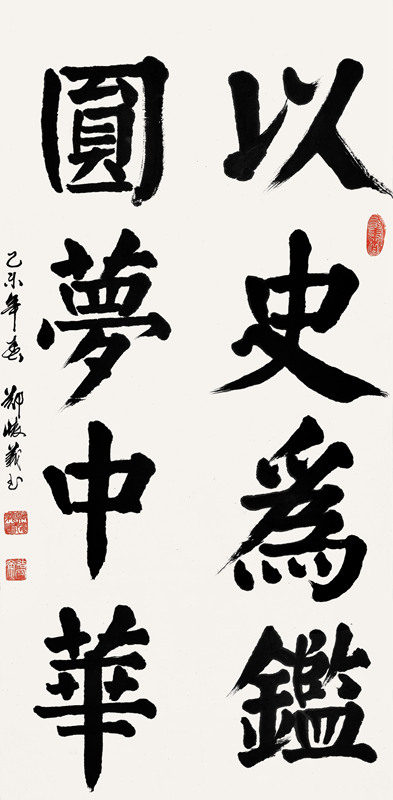 以史爲鑑
圓夢中華
乙未年春 鄭 義书